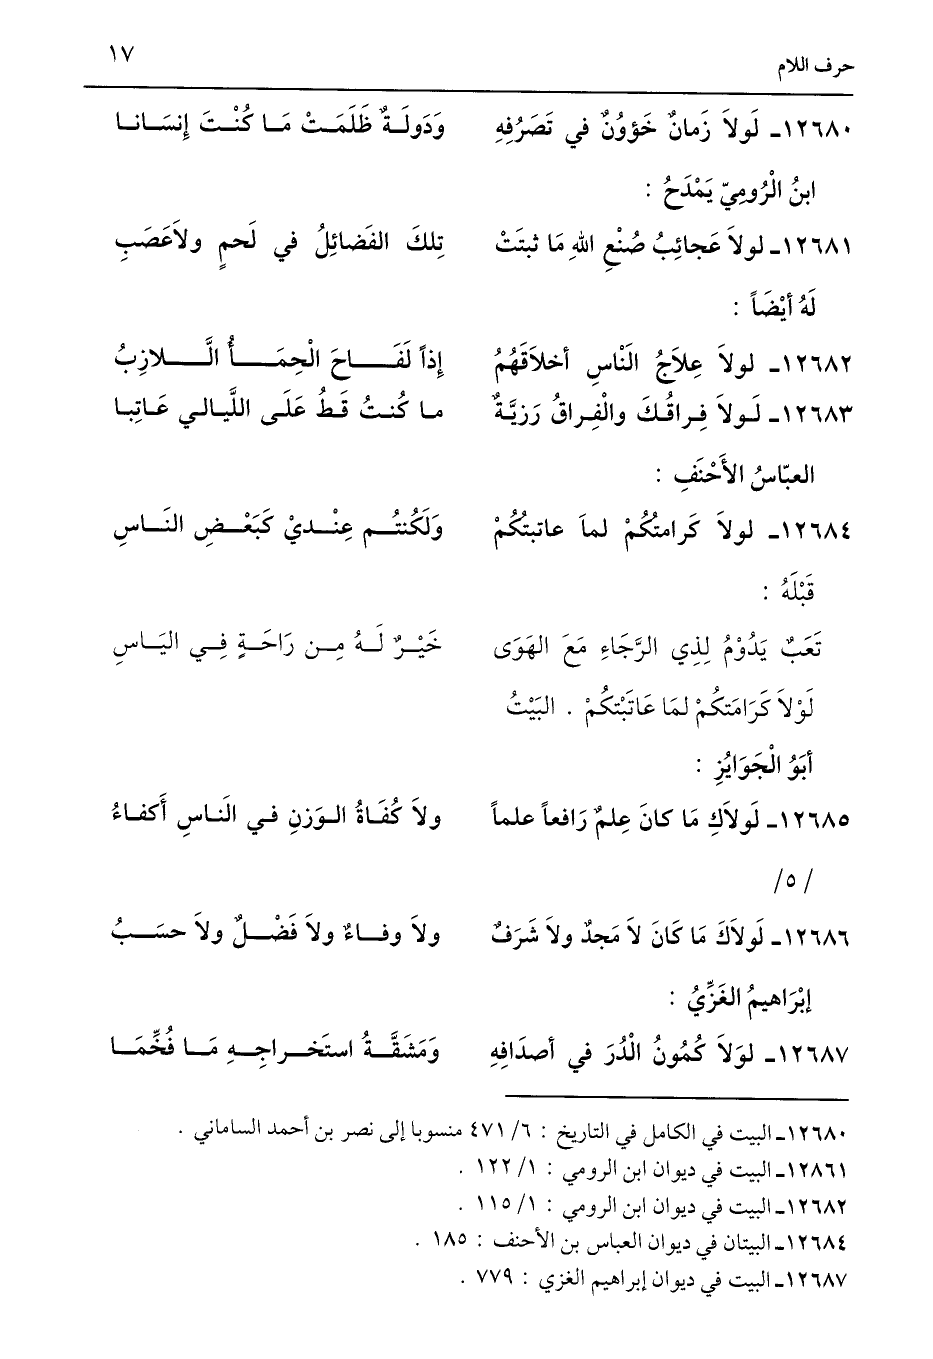 حرف اللام ١٧
١٢٦٨٠ـ لَولاَ زَمانٌ خَؤونٌ في تَصَرُفِهِ وَدَولَـةٌ ظَلَمَتْ مَـا كُنْـتَ إِنسَـانـا
ابنُ الْرُومِيّ يَمْدَحُ :
١٢٦٨١ـ لولاَ عَجائِبُ صُنْعِ اللهِ مَا ثبتَتْ تِلكَ الفَضائِلُ في لَحمٍ ولاَعَصَبِ
لَهُ أيْضَاً :
١٢٦٨٢ـ لولاَ عِلاَجُ الْنَاسِ أخلاَقَهُمُ إذاً لَفَـــاحَ الْحِمَـــأُ الَّـــلازِبُ
١٢٦٨٣ـ لَـولاَ فِـراقُـكَ والْفِـراقُ رَزيَّـةٌ مـا كُنـتُ قَـطُ عَلَـى اللَّيـالـي عَـاتِبـا
العبّاسُ الأَحْنَفِ :
١٢٦٨٤ـ لولاَ كَرامتُكُمْ لماَ عاتبتُكُمْ وَلَكُنتُـــم عِنْــديْ كَبَعْــضِ النَــاسِ
قَبْلَهُ :
تَعَبٌ يَدُوْمُ لِذِي الرَّجَاءِ مَعَ الهَوَى خَيْـرٌ لَـهُ مِـن رَاحَـةٍ فِـي اليَـاسِ
لَوْلاَ كَرَامَتكُمْ لمَا عَاتَبْتكُمْ . البَيْتُ
أبَوُ الْجَوَايُزِ :
١٢٦٨٥ـ لَولاَكِ مَا كانَ عِلمٌ رَافعاً علماً ولاَ كُفَـاةُ الـوَزنِ فـي الَنـاسِ أَكفـاءُ
/ ٥/
١٢٦٨٦ـ لَولاَكَ مَا كَانَ لاَ مَجدٌ ولاَ شَرَفٌ ولاَ وفــاءٌ ولاَ فَضْــلٌ ولاَ حسَــبُ
إبْرَاهيمُ الغَزِّيُ :
١٢٦٨٧ـ لوَلاَ كُمُونُ الْدُرَ في أصدَافِهِ وَمَشقَّــةُ استَخــراجِــهِ مَــا فُخِّمَــا
١٢٦٨٠ـ البيت في الكامل في التاريخ : ٦/ ٤٧١ منسوبا إلى نصر بن أحمد الساماني .
١٢٨٦١ـ البيت في ديوان ابن الرومي : ١/ ١٢٢ .
١٢٦٨٢ـ البيت في ديوان ابن الرومي : ١/ ١١٥ .
١٢٦٨٤ـ البيتان في ديوان العباس بن الأحنف : ١٨٥ .
١٢٦٨٧ـ البيت في ديوان إبراهيم الغزي : ٧٧٩ .